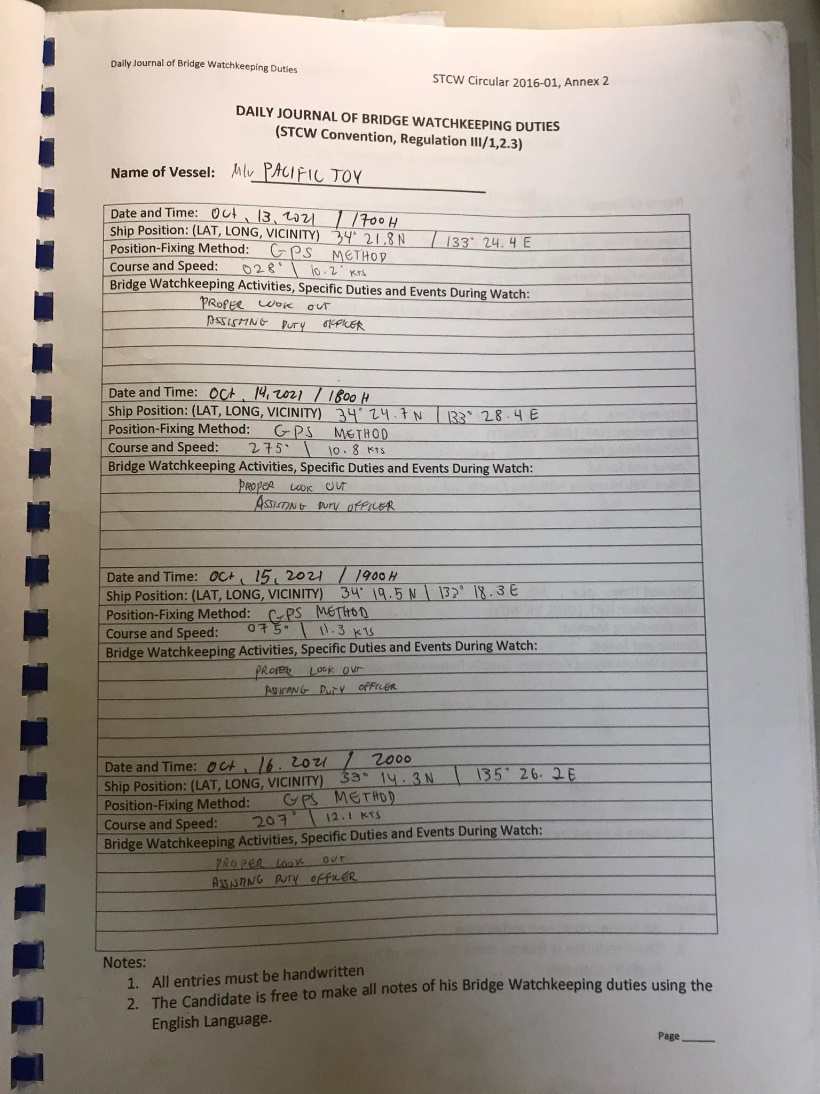 Daily Journal of Bridge Watchkeeping Duties
STCW Circular 2016-01, Annex 2
DAILY JOURNAL OF BRIDGE WATCHKEEPING DUTIES
(STCW Convention, Regulation III/1,2.3)
Name of Vessel: M/V PACIFIC JOY
Date and Time: Oct, 13, 2021 / 1700H
Ship Position: (LAT, LONG, VICINITY) 34° 21.8 N / 133° 24.4 E
Position-Fixing Method: GPS METHOD
Course and Speed: 028° \ 10.2 KTS
Bridge Watchkeeping Activities, Specific Duties and Events During Watch:
PROPER LOOK OUT
ASSISTING DUTY OFFICER
Date and Time: OCt, 14, 2021 / 1800 H
Ship Position: (LAT, LONG, VICINITY) 34° 24.7 N | 133° 28.4 E
Position-Fixing Method: GPS METHOD
Course and Speed: 275° \ 10.8 KTS
Bridge Watchkeeping Activities, Specific Duties and Events During Watch:
PROPER LOOK OUT
ASSISTING DUTY OFFICER
Date and Time: OCt, 15, 2021 / 1900H
Ship Position: (LAT, LONG, VICINITY) 34° 19.5 N \ 18.3 E
Position-Fixing Method: GPS METHOD
Course and Speed: 075° \ 11.3 KTS
Bridge Watchkeeping Activities, Specific Duties and Events During Watch:
PROPER LOOK OUT
DUTY OFFICER
Date and Time: OCt, 16. 2021 / 2000
Ship Position: (LAT, LONG, VICINITY) 33° 14.3 N \ 135° 26.2 E
Position-Fixing Method: GPS METHOD
Course and Speed: 207° \ 12.1 KTS
Bridge Watchkeeping Activities, Specific Duties and Events During Watch:
PROPER LOOK OUT
ASSISTING DUTY OFFICER
Notes:
1. All entries must be handwritten
2. The Candidate is free to make all notes of his Bridge Watchkeeping duties using the
English Language.
Page ____